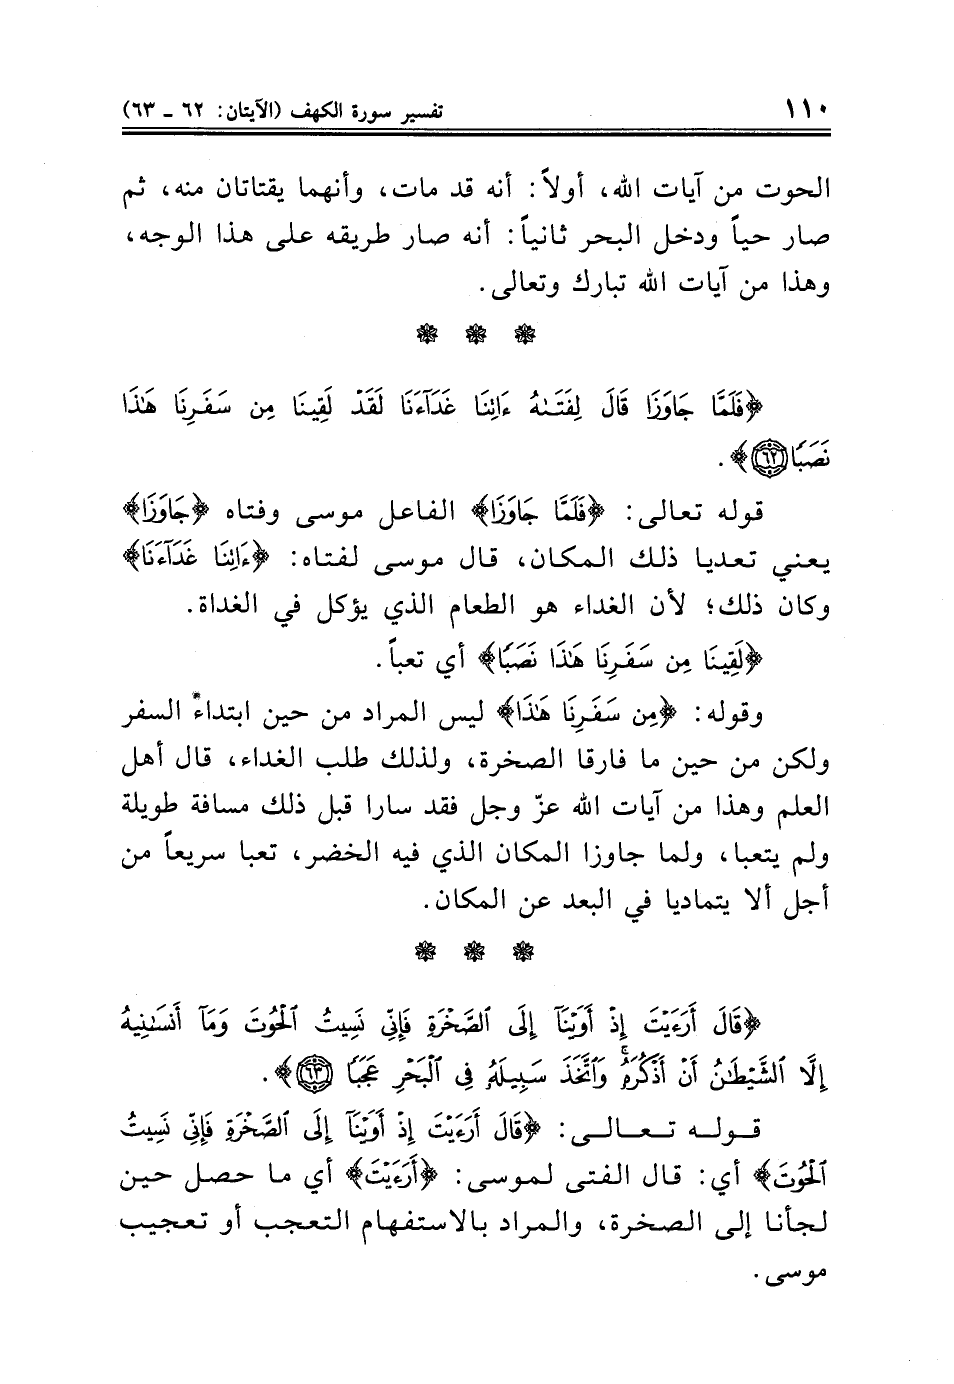 ١١٠ تفسير سورة الكهف (الآيتان: ٦٢ ـ ٦٣)
الحوت من آيات الله، أولاً: أنه قد مات، وأنهما يقتاتان منه، ثم
صار حياً ودخل البحر ثانياً: أنه صار طريقه على هذا الوجه،
وهذا من آيات الله تبارك وتعالى.
﴿فَلَمَّا جَاوَزَا قَالَ لِفَتَىٰهُ ءَاتِنَا غَدَآءَنَا لَقَدْ لَقِينَا مِن سَفَرِنَا هَٰذَا
نَصَبًا ٦٢﴾.
قوله تعالى: ﴿فَلَمَّا جَاوَزَا﴾ الفاعل موسى وفتاه ﴿جَاوَزَا﴾
يعني تعديا ذلك المكان، قال موسى لفتاه: ﴿ءَاتِنَا غَدَآءَنَا﴾
وكان ذلك؛ لأن الغداء هو الطعام الذي يؤكل في الغداة.
﴿لَقِينَا مِن سَفَرِنَا هَٰذَا نَصَبًا﴾ أي تعباً.
وقوله: ﴿مِن سَفَرِنَا هَٰذَا﴾ ليس المراد من حين ابتداء السفر
ولكن من حين ما فارقا الصخرة، ولذلك طلب الغداء، قال أهل
العلم وهذا من آيات الله عزّ وجل فقد سارا قبل ذلك مسافة طويلة
ولم يتعبا، ولما جاوزا المكان الذي فيه الخضر، تعبا سريعاً من
أجل ألا يتماديا في البعد عن المكان.
﴿قَالَ أَرَءَيْتَ إِذْ أَوَيْنَآ إِلَى ٱلصَّخْرَةِ فَإِنِّي نَسِيتُ ٱلْحُوتَ وَمَآ أَنسَىٰنِيهُ
إِلَّا ٱلشَّيْطَٰنُ أَنْ أَذْكُرَهُۥۚ وَٱتَّخَذَ سَبِيلَهُۥ فِي ٱلْبَحْرِ عَجَبًا ٦٣﴾.
قوله تعالى: ﴿قَالَ أَرَءَيْتَ إِذْ أَوَيْنَآ إِلَى ٱلصَّخْرَةِ فَإِنِّي نَسِيتُ
ٱلْحُوتَ﴾ أي: قال الفتى لموسى: ﴿أَرَءَيْتَ﴾ أي ما حصل حين
لجأنا إلى الصخرة، والمراد بالاستفهام التعجب أو تعجيب
موسى.